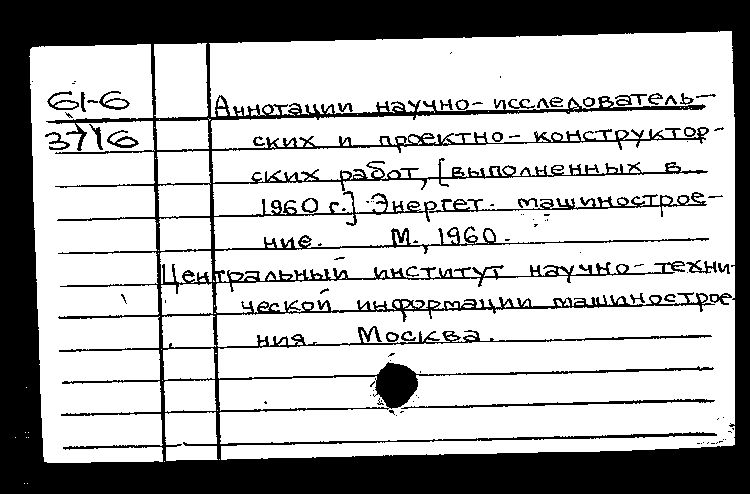 61-6
3716
Аннотации научно-исследователь-
ских и проектно-конструктор-
ских работ, [выполненных в
1960 г.] Энергет. машинострое-
ние. М., 1960.
Центральный институт научно-техни-
ческой информации машинострое-
ния. Москва.